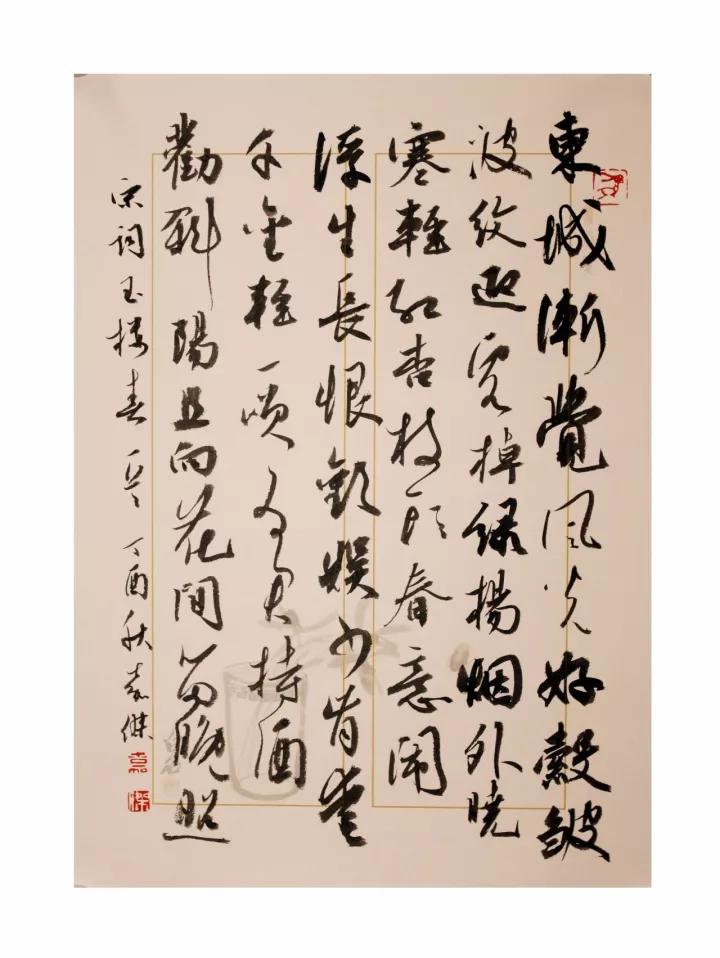 東城漸覺風光好縠皺
波紋迎客棹綠楊烟外曉
寒輕紅杏枝頭春意鬧
浮生長恨歡娛少肯愛
千金輕一笑為君持酒
勸斜陽且向花間留晚照
宋詞玉樓春 丁酉秋嘉傑
嘉
傑